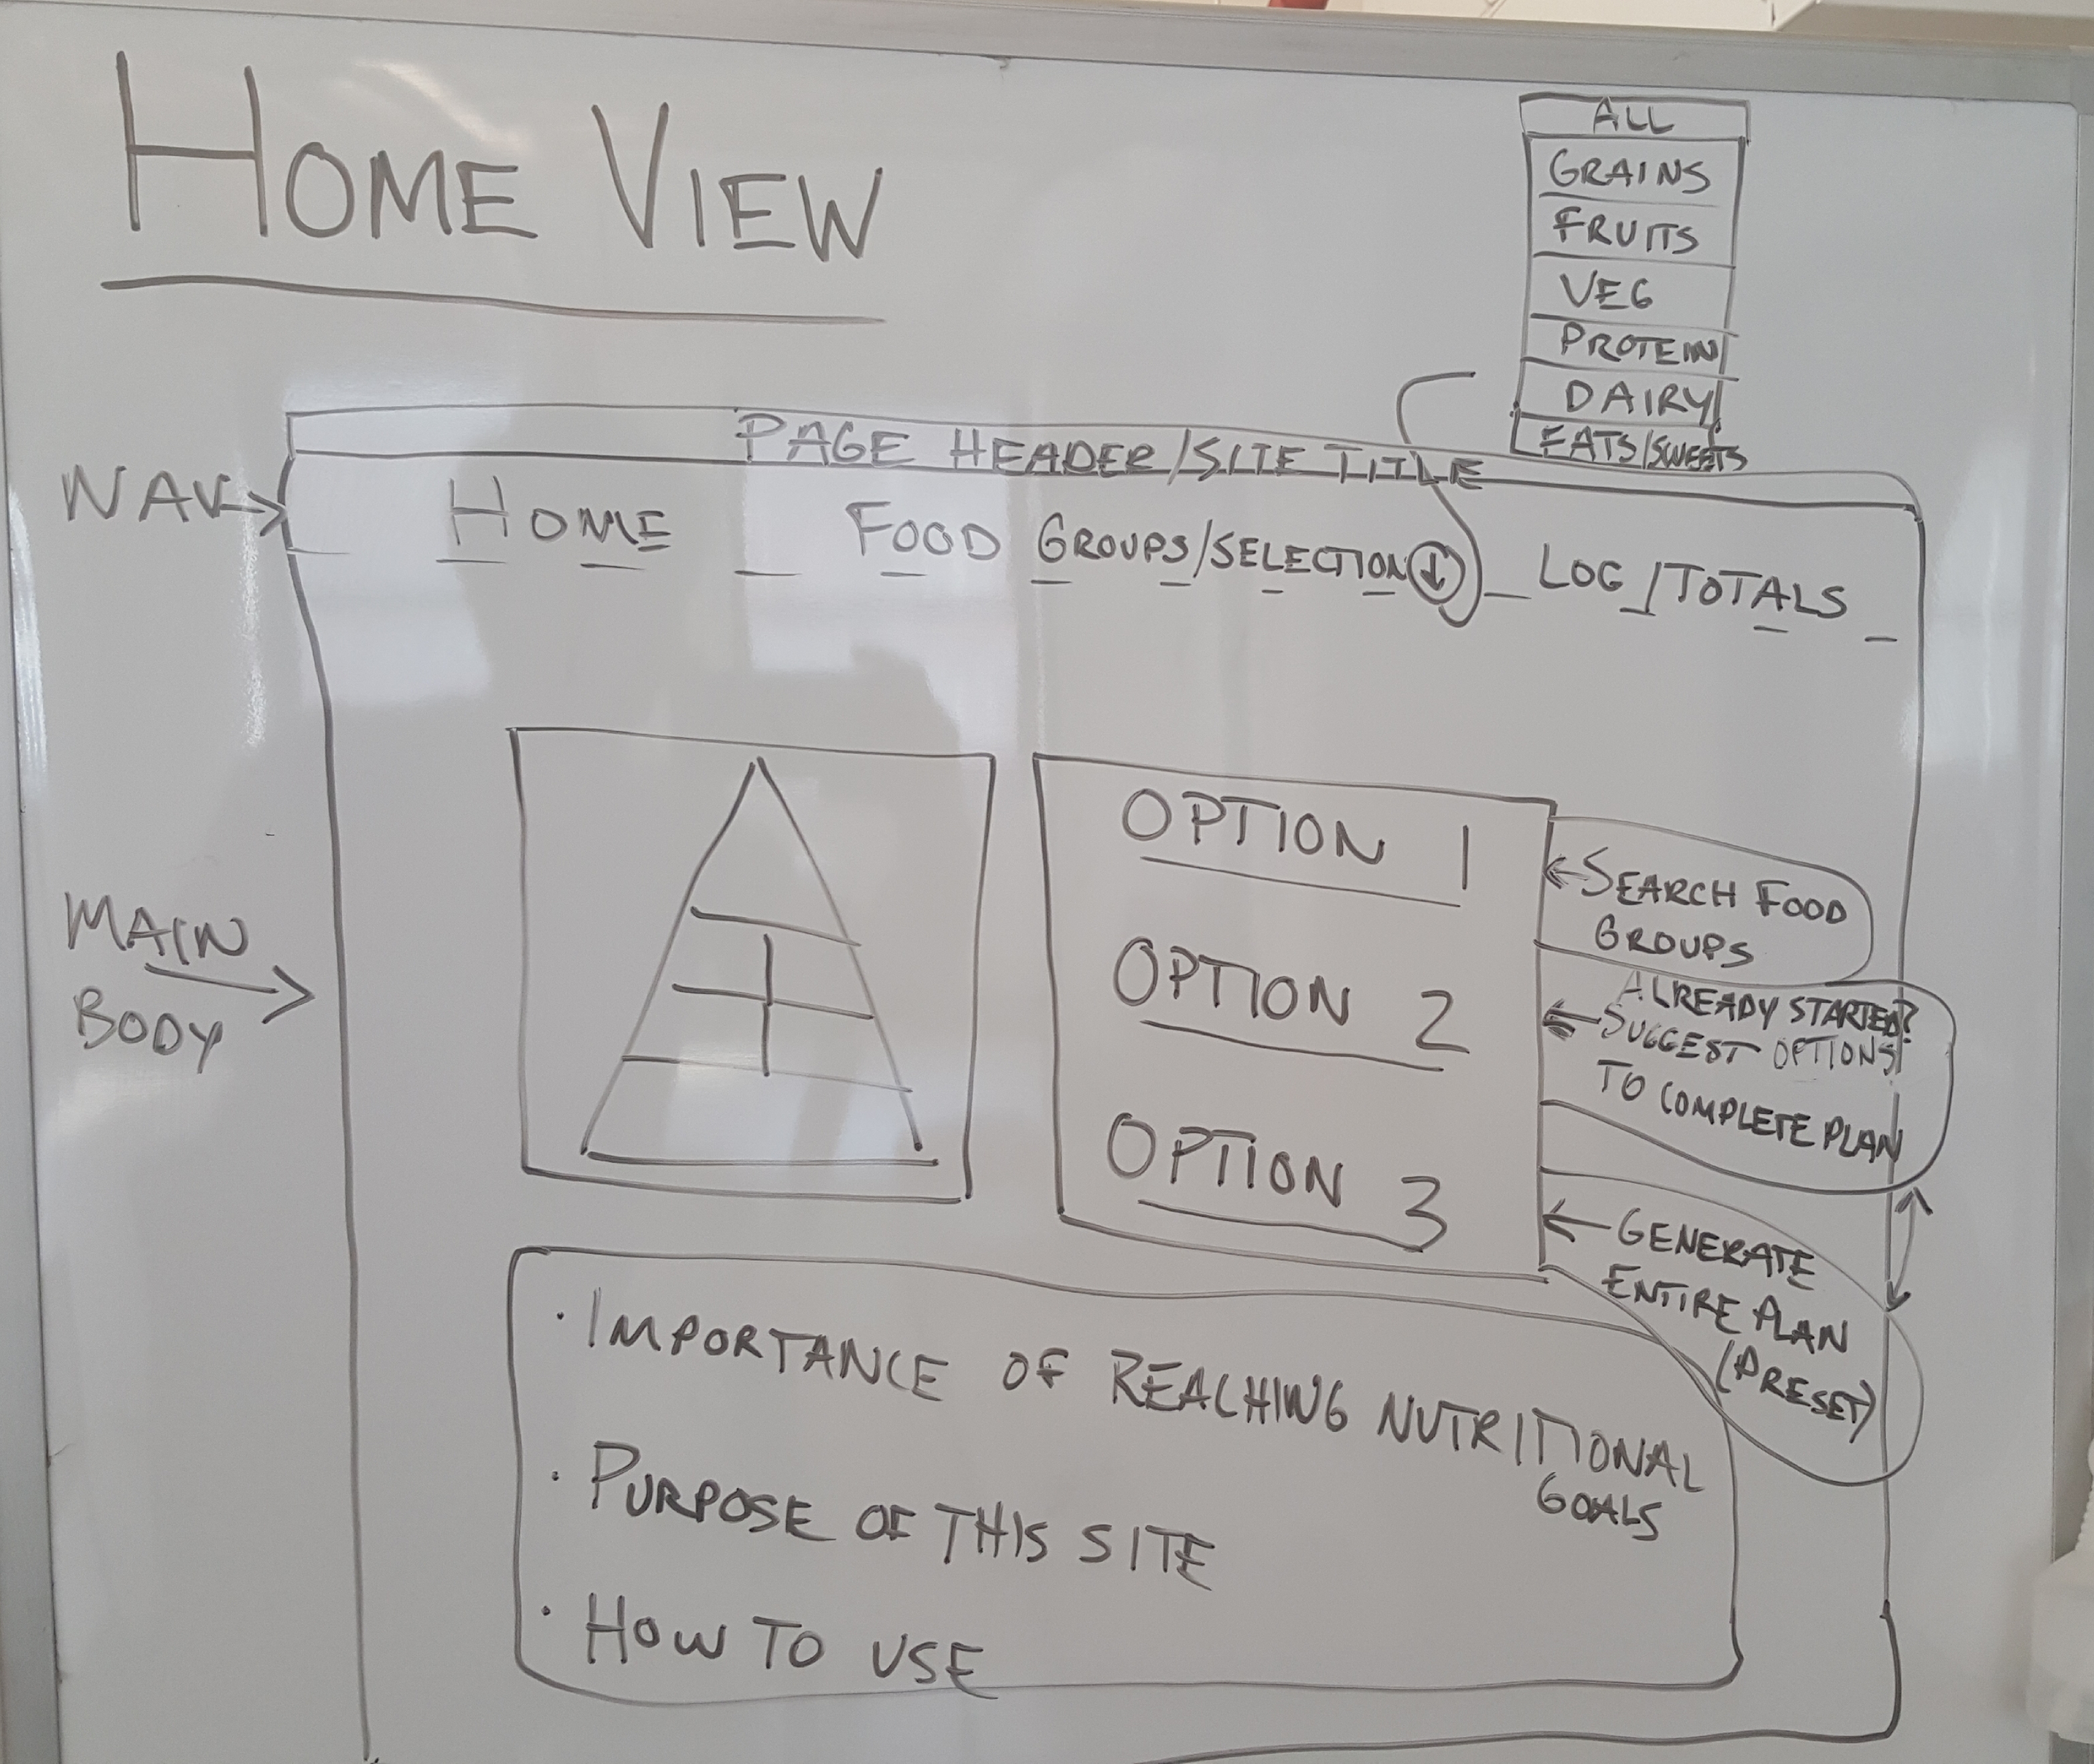 HOME VIEW
ALL
GRAINS
FRUITS
VEG
PROTEIN
DAIRY
FATS/SWEETS
PAGE HEADER/SITE TITLE
NAV
HOME
FOOD GROUPS/SELECTION
LOG/TOTALS
MAIN
BODY
OPTION 1
SEARCH FOOD
GROUPS
OPTION 2
ALREADY STARTED?
SUGGEST OPTIONS
TO COMPLETE PLAN
OPTION 3
GENERATE
ENTIRE PLAN
(PRESET)
· IMPORTANCE OF REACHING NUTRITIONAL
GOALS
· PURPOSE OF THIS SITE
· HOW TO USE